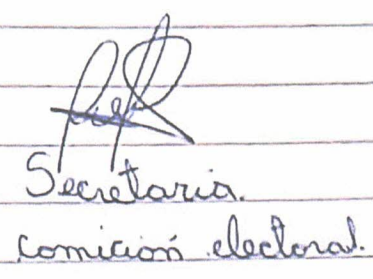 Secretaria.
comición electoral.